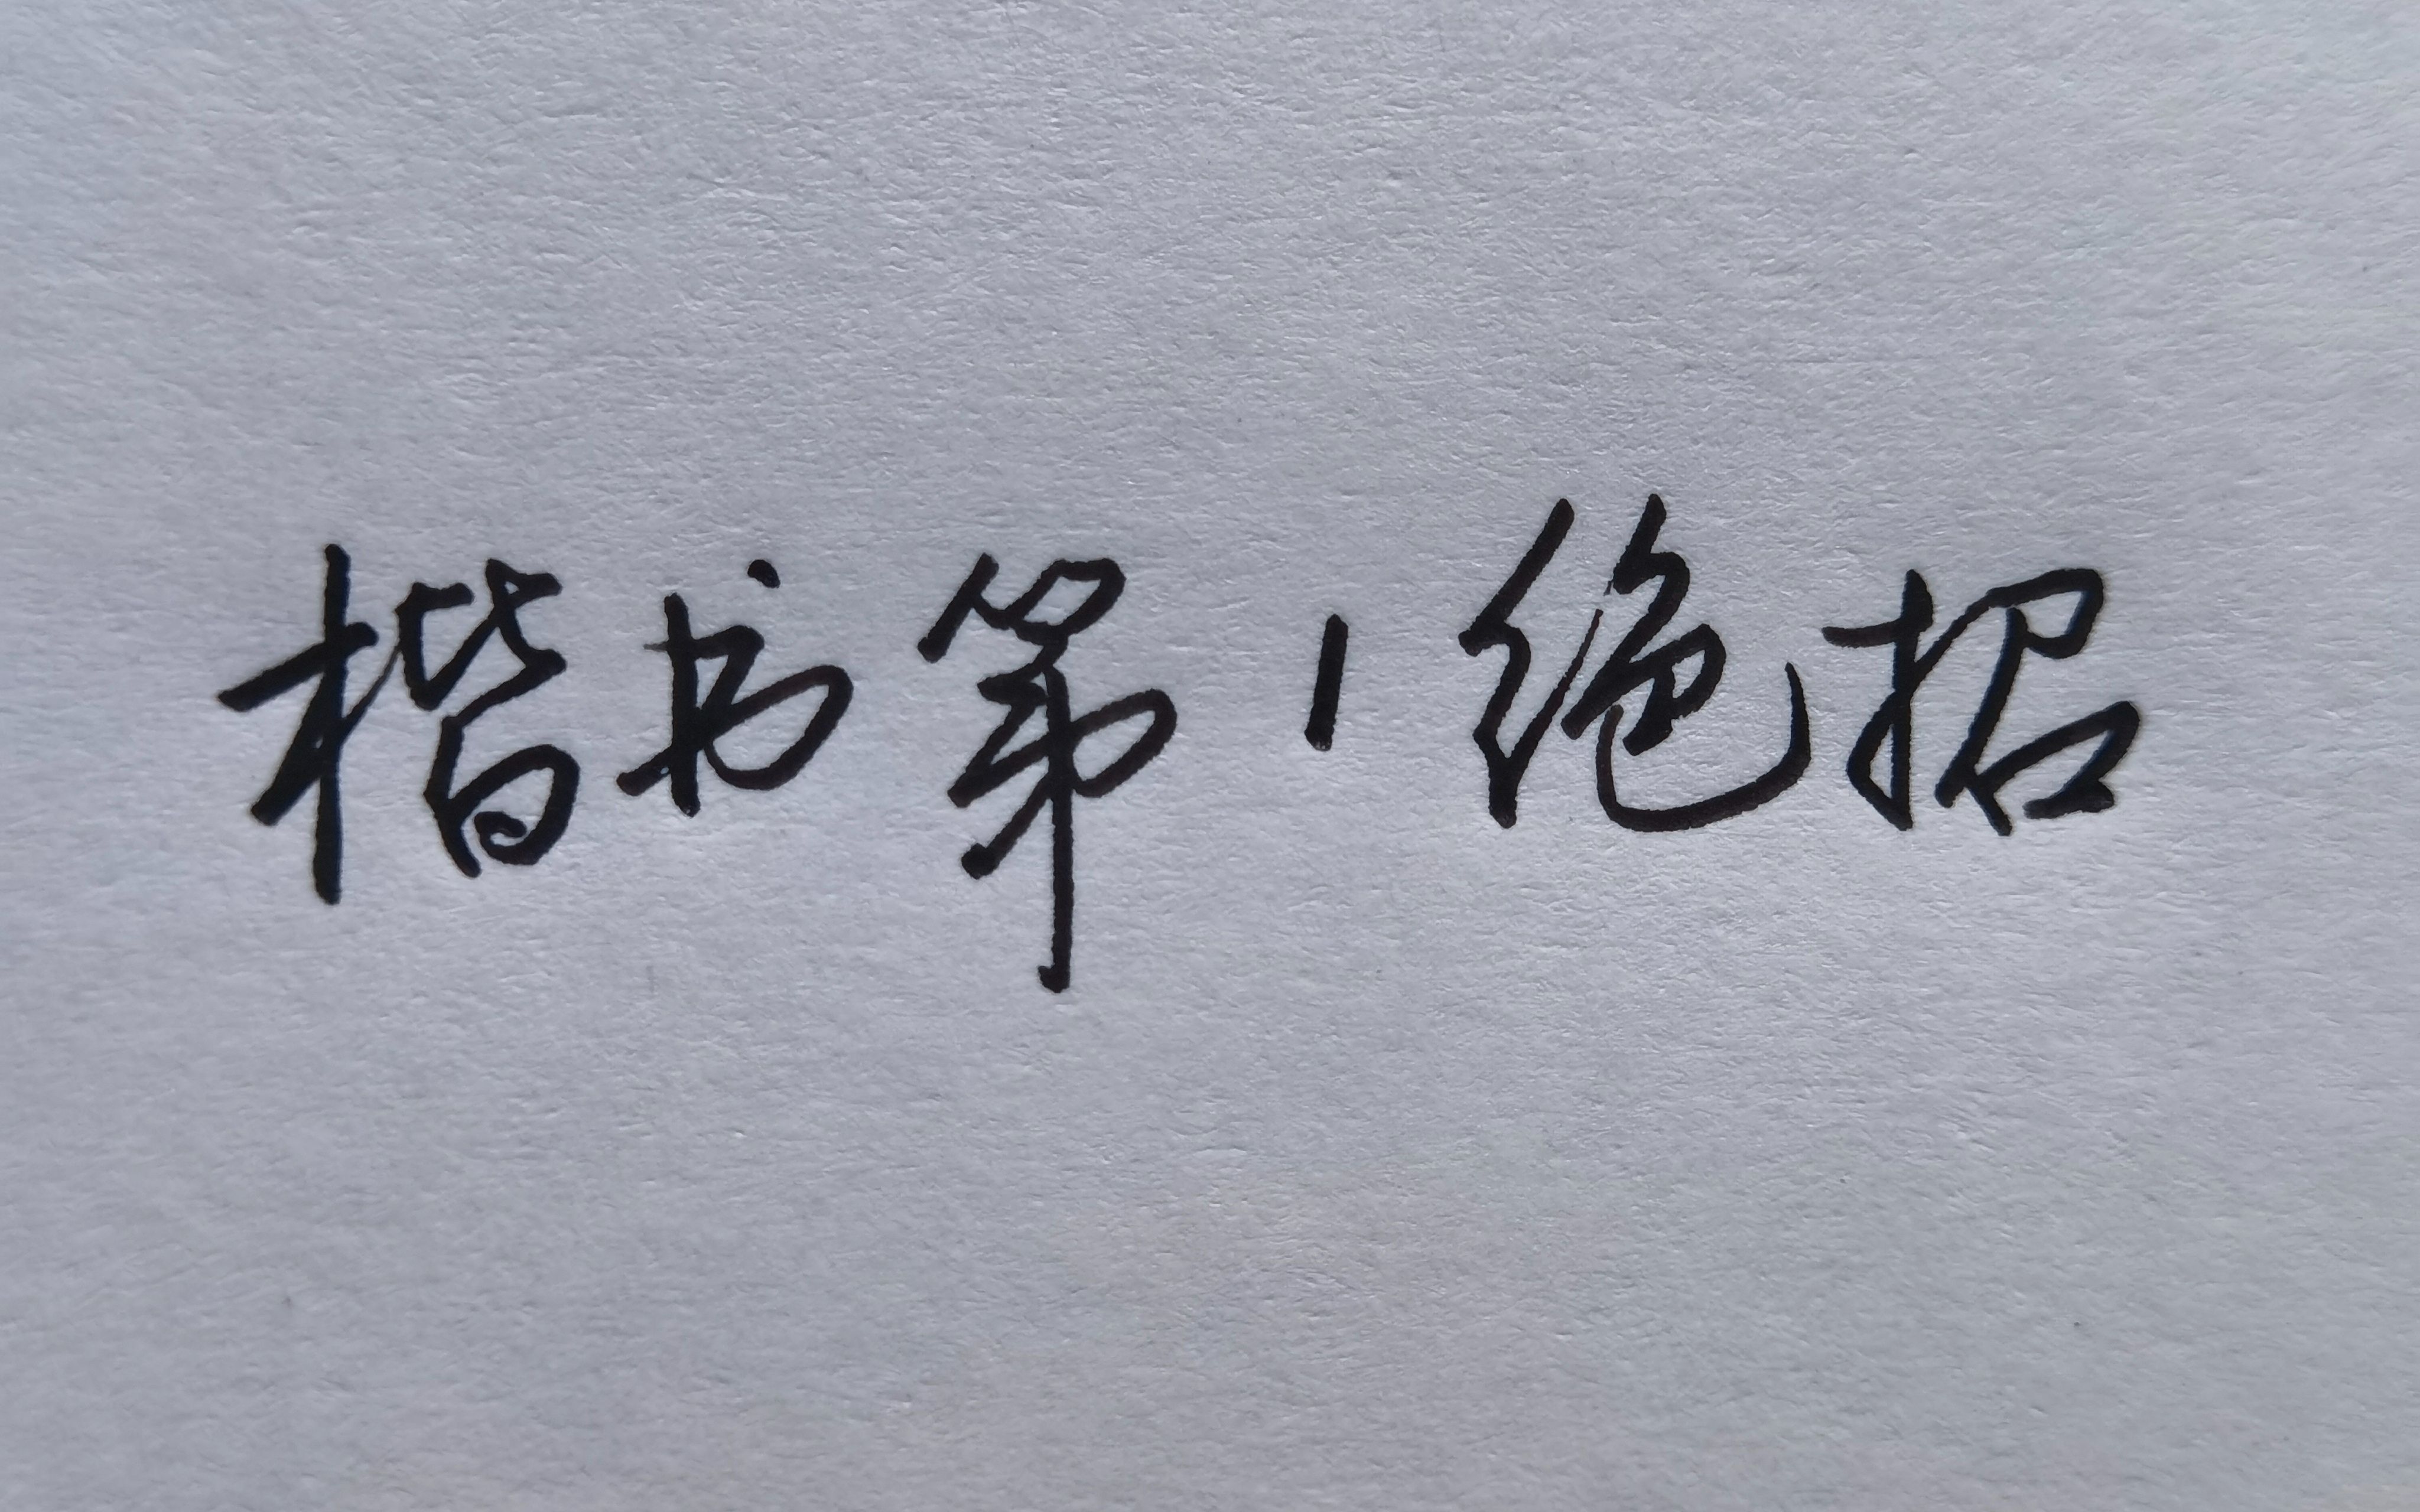 楷书第1绝招